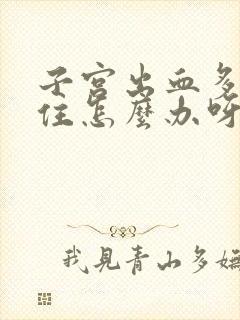 子宫出血多
住怎麼办呀
我見青山多嫵